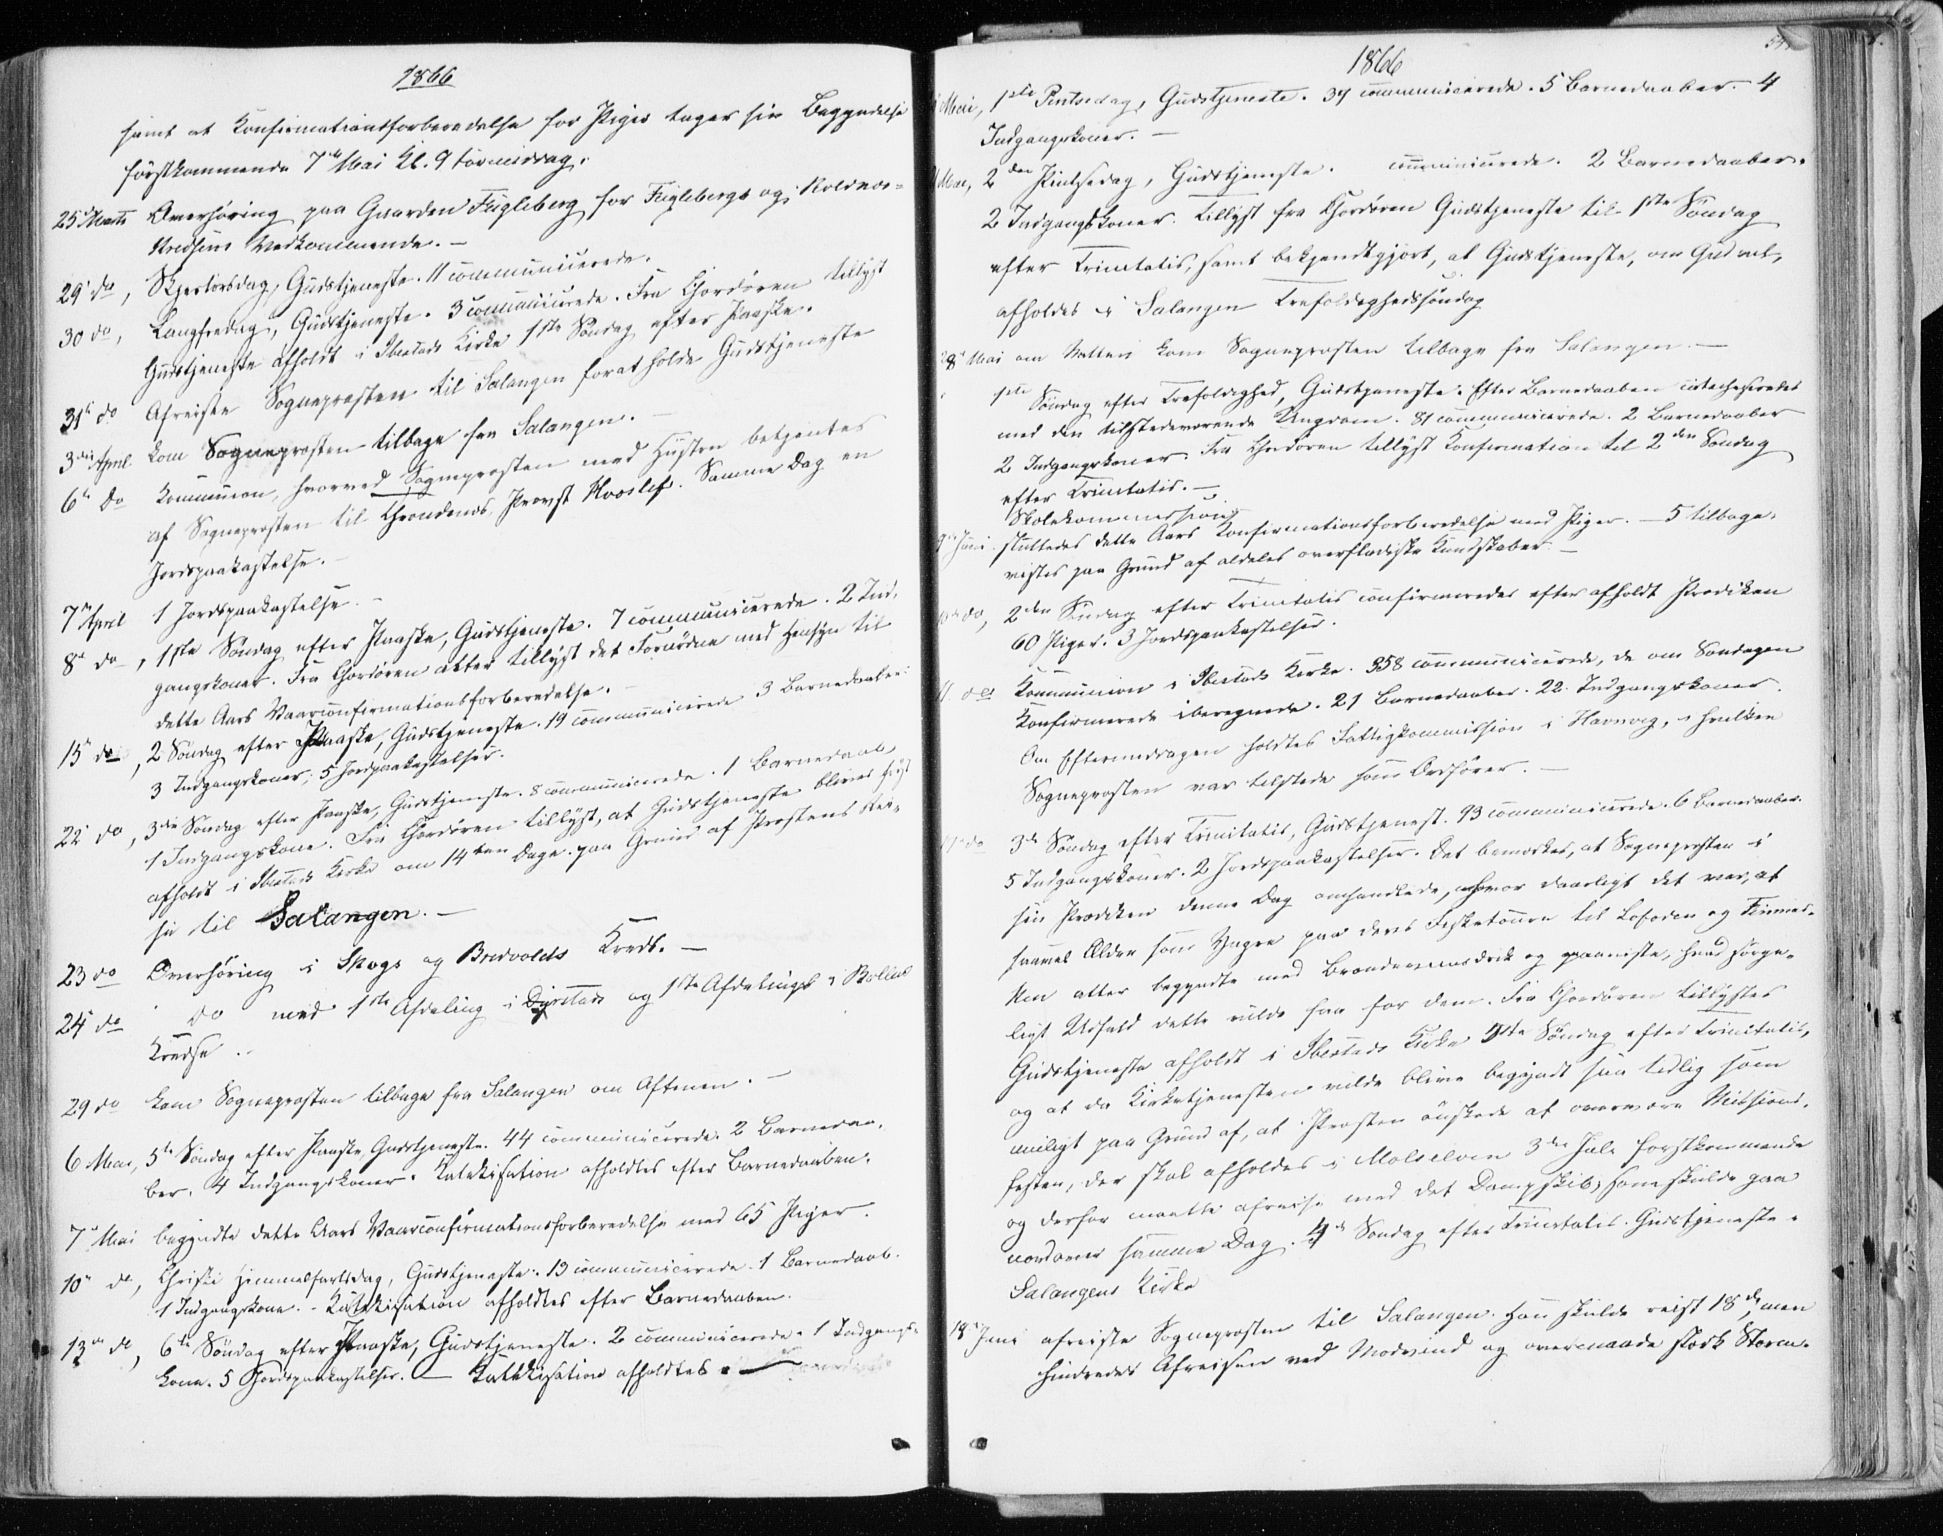 1866
samt at Konfirmationsforberedelse for Piger tager sin Begyndelse
førstkommende 7de Mai Kl. 9 Formiddag.
25 Marts Overhøring paa Gaarden Fugleberg for Fuglebergs og Rolnæs=
Kredsens Vedkommende. –
29 do, Skjertorsdag, Gudstjeneste. 11 communicerede.
30 do, Langfredag, Gudstjeneste. 3 communicerede. Fra Chordøren tillyst
Gudstjeneste afholdt i Ibestads Kirke 1ste Søndag efter Paaske.
31 do Afreiste Sognepræsten til Salangen forat holde Gudstjeneste
3die April kom Sognepræsten tilbage fra Salangen. –
6te do Kommunion, hvorved Sognepræsten med Hustru betjentes
af Sognepræsten til Throndenes, Provst Hvoslef. Samme Dag en
Jordspaakastelse. –
7de April 1 Jordspaakastelse. –
8de do, 1ste Søndag efter Paaske, Gudstjeneste. 7 communicerede. 2 Ind-
gangskoner. Fra Chordøren atter tillyst det Fornødne med Hensyn til
dette Aars Vaarconfirmationsforberedelse. –
15de do, 2 Søndag efter Paaske, Gudstjeneste. 19 communicerede 3 Barnedaaber.
3 Indgangskoner; 5 Jordspaakastelser.
22 do, 3die Søndag efter Paaske, Gudstjeneste. 8 communicerede. 1 Barnedaab
1 Indgangskone. Fra Chordøren tillyst, at Gudstjeneste bliver først
afholdt i Ibestads Kirke om 14ten Dage paa Grund af Præstens Rei-
se til Salangen. –
23 do Overhøring i Skogs og Bredvolds Kreds. –
24 do do med 1ste Afdeling i Dyrstads og 1ste Afdeling i Bolles
Kredse.
29 do kom Sognepræsten tilbage fra Salangen om Aftenen. –
6 Mai, 5te Søndag efter Paaske, Gudstjeneste. 44 communicerede. 2 Barnedaa-
ber. 4 Indgangskoner. Katekisation afholdtes efter Barnedaaben.
7de Mai begyndte dette Aars Vaarconfirmationsforberedelse med 65 Piger.
10de do, Christi Himmelfartsdag, Gudstjeneste. 13 communicerede. 1 Barnedaab.
1 Indgangskone. – Katekisation afholdtes efter Barnedaaben.
13de do, 6te Søndag efter Paaske, Gudstjeneste. 2 communicerede. 1 Indgangs-
kone. 5 Jordspaakastelser. – Katekisation afholdtes.
1866
Mai, 1ste Pintsedag, Gudstjeneste. 37 communicerede. 5 Barnedaaber. 4
Indgangskoner. –
Mai, 2den Pintsedag, Gudstjeneste. communicerede. 2 Barnedaaber.
2 Indgangskoner. Tillyst fra Chordøren Gudstjeneste til 1ste Søndag
efter Trinitatis, samt bekjendtgjort, at Gudstjeneste, om Gud vil,
afholdes i Salangen Trefoldighedssøndag
28 Mai om Natten kom Sognepræsten tilbage fra Salangen. –
1ste Søndag efter Trefoldighed, Gudstjeneste. Efter Barnedaaben catechiseredes
med den tilstedeværende Ungdom. 81 communicerede. 2 Barnedaaber
2 Indgangskoner. Fra Chordøren tillyst Konfirmation til 2den Søndag
efter Trinitatis. –
Skolekommission
9de Juni sluttedes dette Aars Konfirmationsforberedelse med Piger. – 5 tilbage-
vistes paa Grund af aldeles overfladiske Kundskaber. –
do, 2den Søndag efter Trinitatis confirmeredes efter afholdt Prædiken
60 Piger. 3 Jordspaakastelser.
11 do Kommunion i Ibestads Kirke. 358 communicerede, de om Søndagen
Konfirmerede iberegnede. 21 Barnedaaber. 22 Indgangskoner.
Om Eftermiddagen holdtes Fattigkommission i Havnvig, i hvilken
Sognepræsten var tilstede som Ordfører. –
17de do 3die Søndag efter Trinitatis, Gudstjenest. 93 communicerede. 6 Barnedaaber.
5 Indgangskoner. 2 Jordspaakastelser. Det bemærkes, at Sognepræsten i
sin Prædiken denne Dag omhandlede, hvor daarligt det var, at
saavel Ældre som Yngre paa deres Fisketourer til Lofoden og Finmar-
ken atter begyndte med Brændeviinsdrik og paaviste, hvad sørge-
ligt Udfald dette vilde faa for dem. Fra Chordøren tillystes
Gudstjeneste afholdt i Ibestads Kirke 5te Søndag efter Trinitatis,
og at da Kirketjenesten vilde blive begyndt saa tidlig som
muligt paa Grund af, at Præsten ønskede at overvære Missions-
festen, der skal afholdes i Malselven 3die Juli førstkommende
og derfor maatte afreise med det Dampskib, som skulde gaa
nordover samme Dag. 4de Søndag efter Trinitatis. Gudstjeneste i
Salangens Kirke
18 Juni afreiste Sognepræsten til Salangen. Han skulde reist 18de, men
hindredes Afreisen ved Modvind og overmaade stærk Storm.